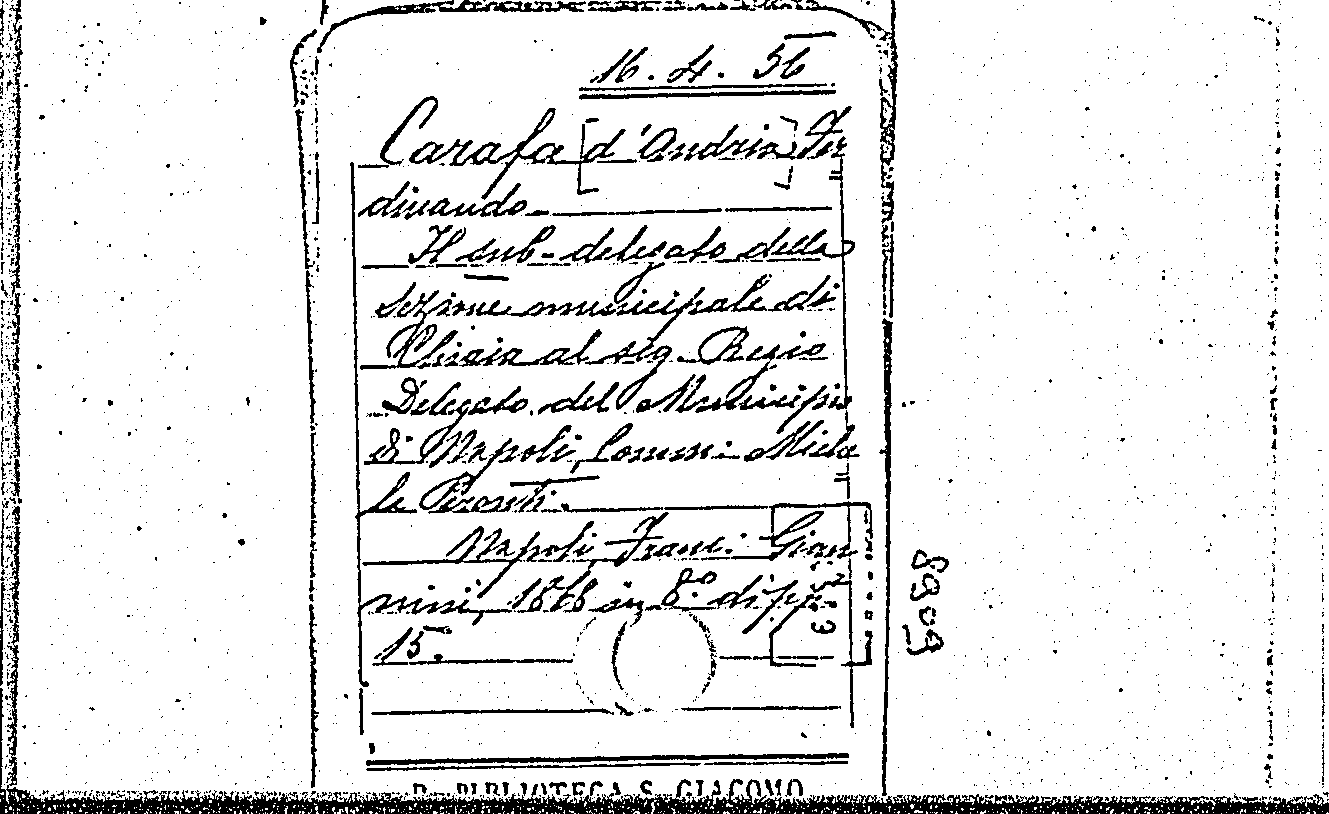 16. 4. 56
Carafa [d'Andria] Fer
dinando.
Il sub-delegato della
sezione municipale di
Chiaia al sig. Regio
Delegato del Municipio
di Napoli, Comm: Miche
le
Napoli, Franc: Gian
nini, 1868 in 8.º di pp.
15.
8909
R. BIBLIOTECA S. GIACOMO